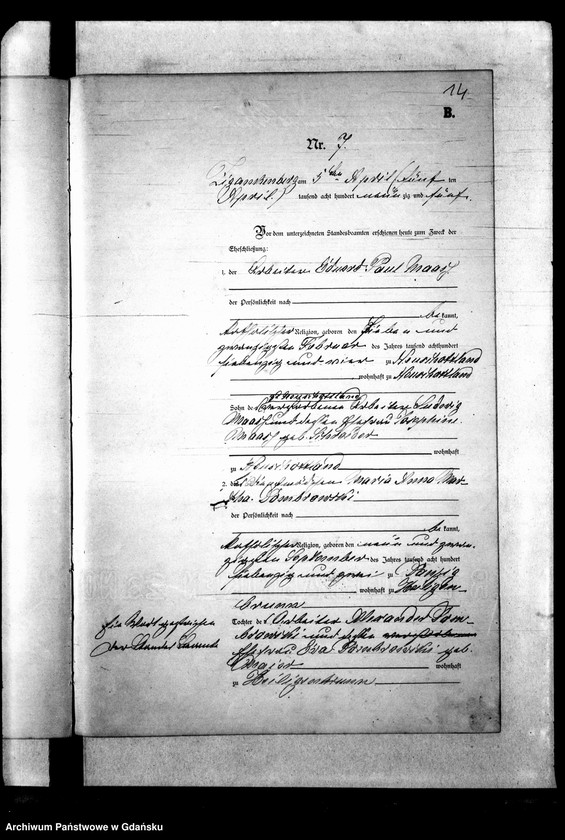 14
B.
Nr. 7.
Zigankenberg am 5ten April (fünf ten
April.) tausend acht hundert neun zig und fünf.
Vor dem unterzeichneten Standesbeamten erschienen heute zum Zweck der
Eheschließung:
1. der Arbeiter Eduard Paul Maaß
der Persönlichkeit nach
be kannt,
katholischer Religion, geboren den sieben und
zwanzigsten Februar des Jahres tausend achthundert
siebenzig und vier zu Neuschottland
wohnhaft zu Neuschottland
Sohn des verstorbenen Arbeiters Ludwig
Maaß und dessen Ehefrau Josephine
Maaß geb.
wohnhaft
zu Neuschottland
2. die Maria Anna Mar-
tha Dombrowski
der Persönlichkeit nach
be kannt,
katholischer Religion, geboren den neun und zwan-
zigsten September des Jahres tausend acht hundert
siebenzig und zwei zu Danzig
wohnhaft zu Heiligen-
brunn
Tochter des Arbeiter Alexander Dom-
browski und dessen
Ehefrau Eva Dombrowski geb.
Major wohnhaft
zu Heiligenbrunn
Ein Wort gestrichen
Der Standesbeamte
Archiwum Państwowe w Gdańsku